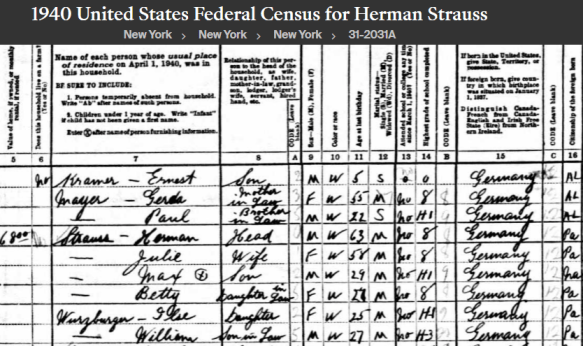 1940 United States Federal Census for Herman Strauss
New York > New York > New York > 31-2031A
Value of home, if owned, or monthly rental, if rented
Does this household live on a farm? (Yes or No)
Name of each person whose usual place of residence on April 1, 1940, was in this household.
BE SURE TO INCLUDE:
1. Persons temporarily absent from household. Write "Ab" after names of such persons.
2. Children under 1 year of age. Write "Infant" if child has not been given a first name.
Enter ⓧ after name of person furnishing information.
Relationship of this person to the head of the household, as wife, daughter, father, mother-in-law, grandson, lodger, lodger's wife, servant, hired hand, etc.
CODE (Leave blank)
Sex—Male (M), Female (F)
Color or race
Age at last birthday
Marital status—
Highest grade of school completed
CODE (Leave blank)
If born in the United States, give State, Territory, or possession.
If foreign born, give country in which birthplace was situated on January 1, 1937.
Distinguish Canada-French from Canada-English and Irish Free State (Eire) from Northern Ireland.
CODE (Leave blank)
Citizenship of the foreign born
5 6 7 8 A 9 10 11 12 13 14 B 15 C 16
no Kramer – Ernest Son M W 5 S 0 Germany AL
Mayer – Gerda Mother in law F W 55 M no 8 Germany AL
— Paul Brother in law M W 22 S no H1 Germany AL
Strauss – Herman Head M W 63 M no 8 Germany Pa
— Julie Wife F W 58 M no 8 Germany Pa
— Max ⓧ Son M W 29 M no H1 Germany na
— Betty Daughter in law F W M no 8 Germany Pa
Wurzburger – Ilse Daughter F W 25 M no H1 Germany Pa
— William Son in law M W 27 M no H3 Germany Pa